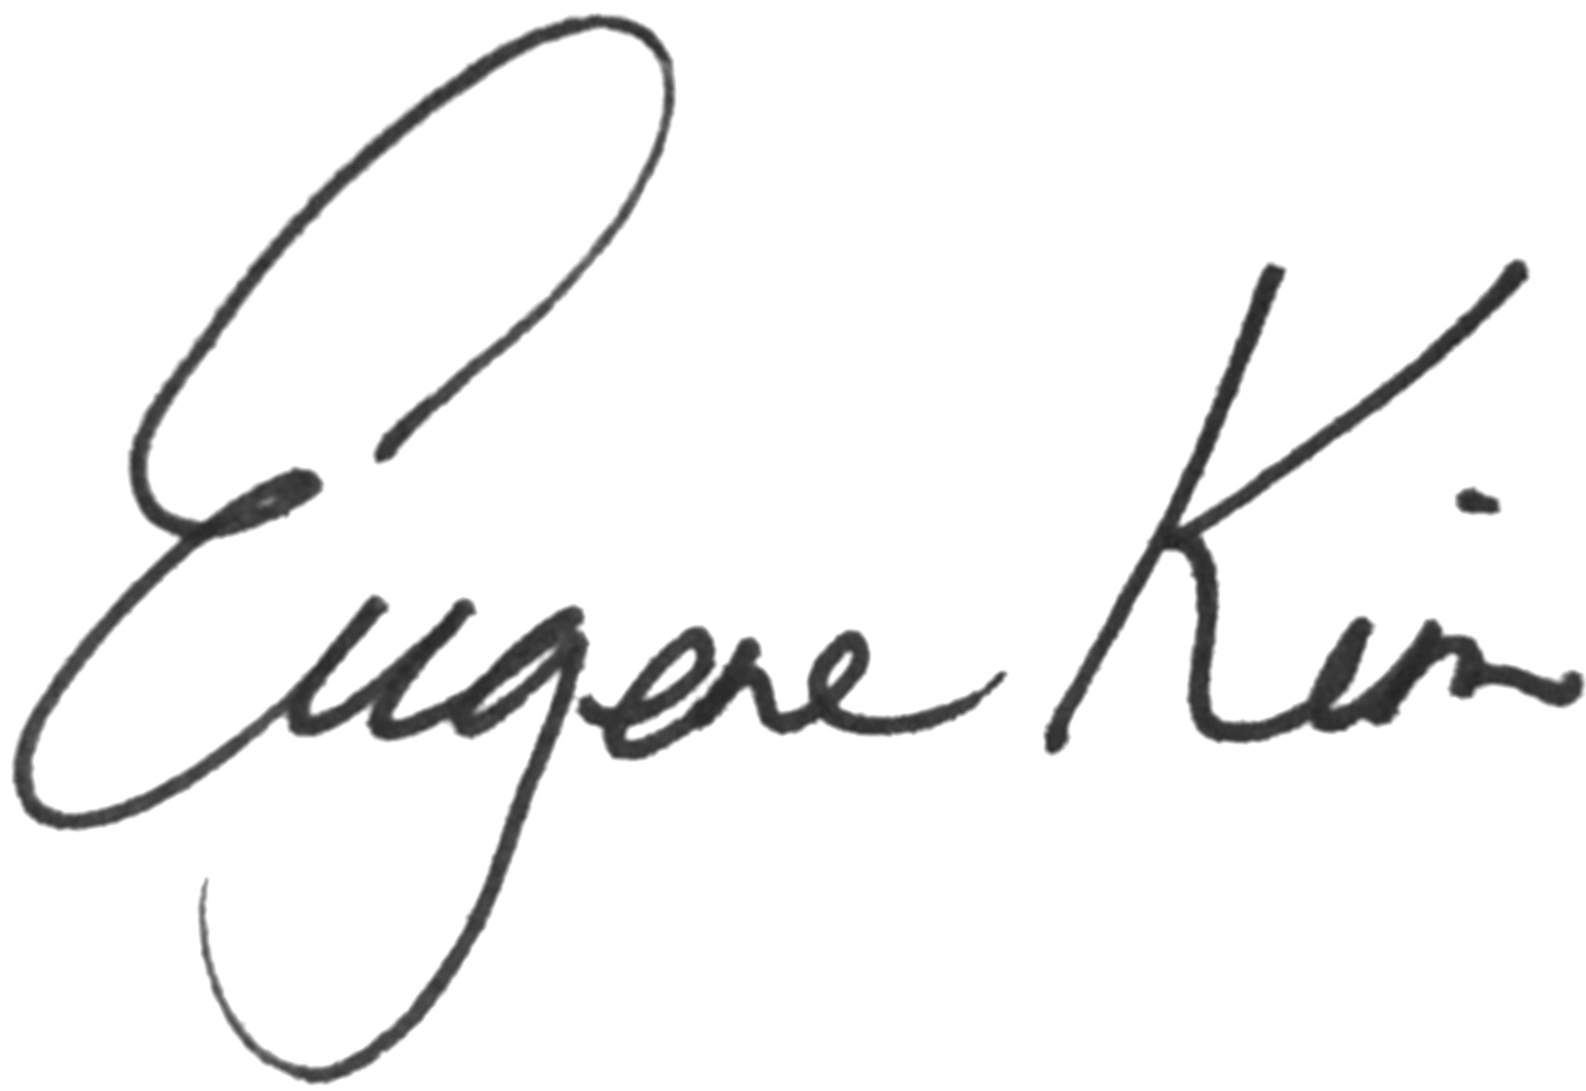 Eugene Kim